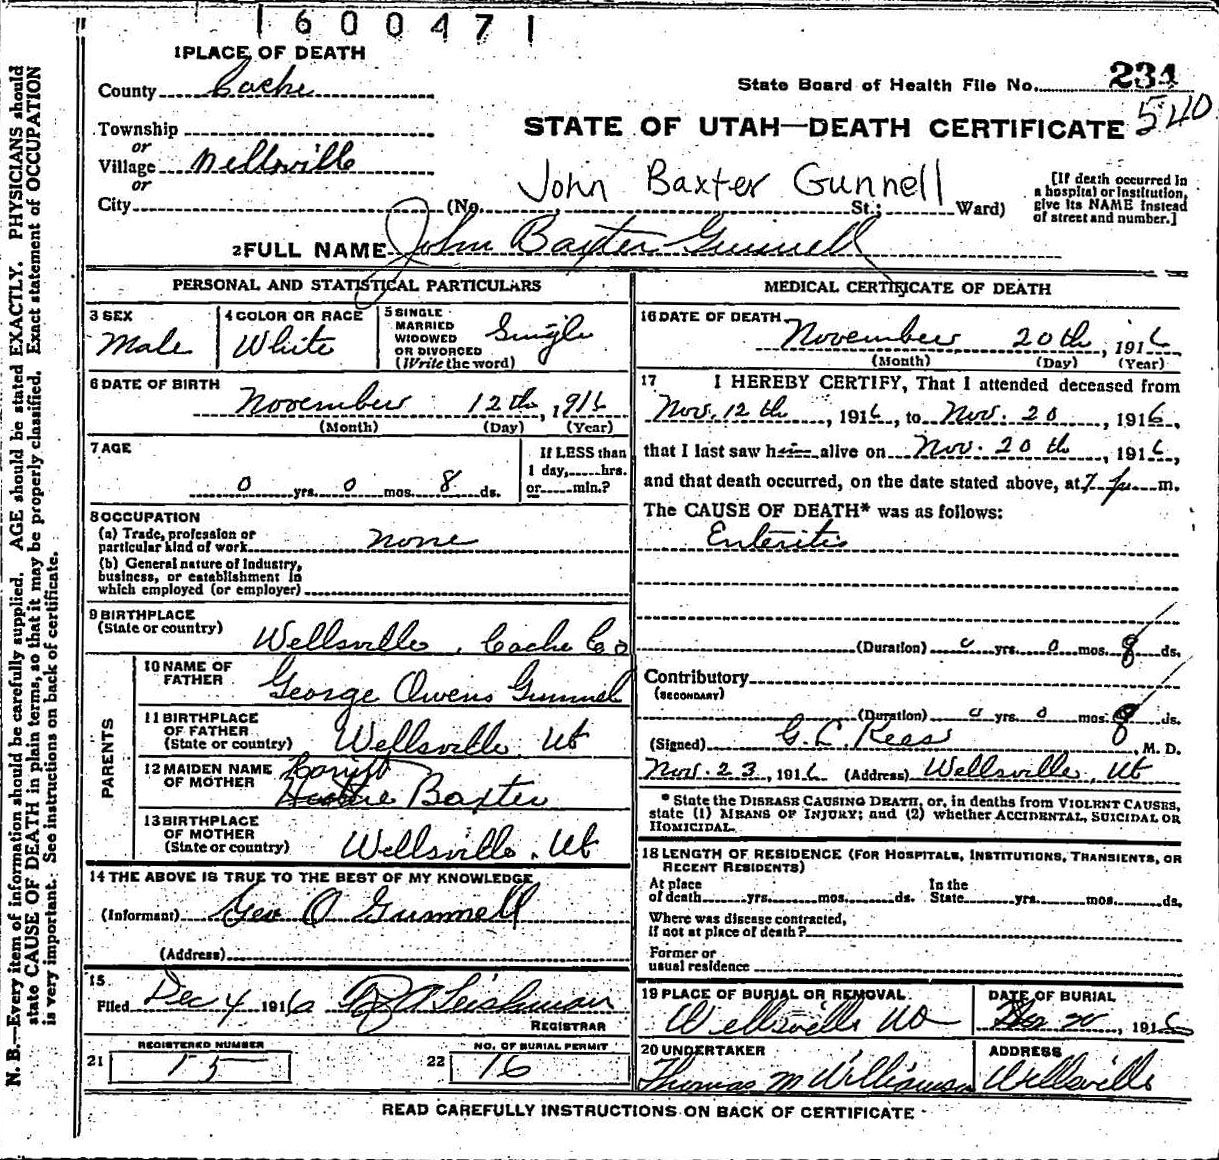 1600471
1 PLACE OF DEATH
County Cache
State Board of Health File No. 234
540
STATE OF UTAH—DEATH CERTIFICATE
Township
or
Village Wellsville
or
City (No. St.; Ward)
John Baxter Gunnell
[If death occurred in
a hospital or institution,
give its NAME instead
of street and number.]
2 FULL NAME John Baxter Gunnell
PERSONAL AND STATISTICAL PARTICULARS
3 SEX
Male
4 COLOR OR RACE
White
5 SINGLE
MARRIED
WIDOWED
OR DIVORCED
(Write the word)
Single
6 DATE OF BIRTH
November 12th, 1916
(Month) (Day) (Year)
7 AGE
0 yrs. 0 mos. 8 ds.
If LESS than
1 day, hrs.
or min.?
8 OCCUPATION
(a) Trade, profession or
particular kind of work none
(b) General nature of Industry,
business, or establishment in
which employed (or employer)
9 BIRTHPLACE
(State or country) Wellsville, Cache Co
PARENTS
10 NAME OF
FATHER George Owens Gunnel
11 BIRTHPLACE
OF FATHER
(State or country) Wellsville Ut
12 MAIDEN NAME
OF MOTHER Baxter
13 BIRTHPLACE
OF MOTHER
(State or country) Wellsville, Ut
14 THE ABOVE IS TRUE TO THE BEST OF MY KNOWLEDGE
(Informant) Geo O Gunnell
(Address)
15
Filed Dec 4 1916 Leishman
REGISTRAR
REGISTERED NUMBER
21 15
NO. OF BURIAL PERMIT
22 16
MEDICAL CERTIFICATE OF DEATH
16 DATE OF DEATH
November 20th, 1916
(Month) (Day) (Year)
17 I HEREBY CERTIFY, That I attended deceased from
Nov. 12th, 1916, to Nov. 20, 1916,
that I last saw him alive on Nov. 20th, 1916,
and that death occurred, on the date stated above, at 7 p m.
The CAUSE OF DEATH* was as follows:
Enteritis
(Duration) 0 yrs. 0 mos. 8 ds.
Contributory
(SECONDARY)
(Duration) 0 yrs. 0 mos. 8 ds.
(Signed) G. C. Rees, M. D.
Nov. 23, 1916 (Address) Wellsville, Ut
* State the DISEASE CAUSING DEATH, or, in deaths from VIOLENT CAUSES,
state (1) MEANS OF INJURY; and (2) whether ACCIDENTAL, SUICIDAL OR
HOMICIDAL.
18 LENGTH OF RESIDENCE (FOR HOSPITALS, INSTITUTIONS, TRANSIENTS, OR
RECENT RESIDENTS)
At place
of death yrs. mos. ds.
In the
State yrs. mos. ds.
Where was disease contracted,
if not at place of death?
Former or
usual residence
19 PLACE OF BURIAL OR REMOVAL
Wellsville
DATE OF BURIAL
20, 1916
20 UNDERTAKER
Thomas M Williamson
ADDRESS
Wellsville
READ CAREFULLY INSTRUCTIONS ON BACK OF CERTIFICATE
N. B.—Every item of information should be carefully supplied. AGE should be stated EXACTLY. PHYSICIANS should
state CAUSE OF DEATH in plain terms, so that it may be properly classified. Exact statement of OCCUPATION
is very important. See instructions on back of certificate.